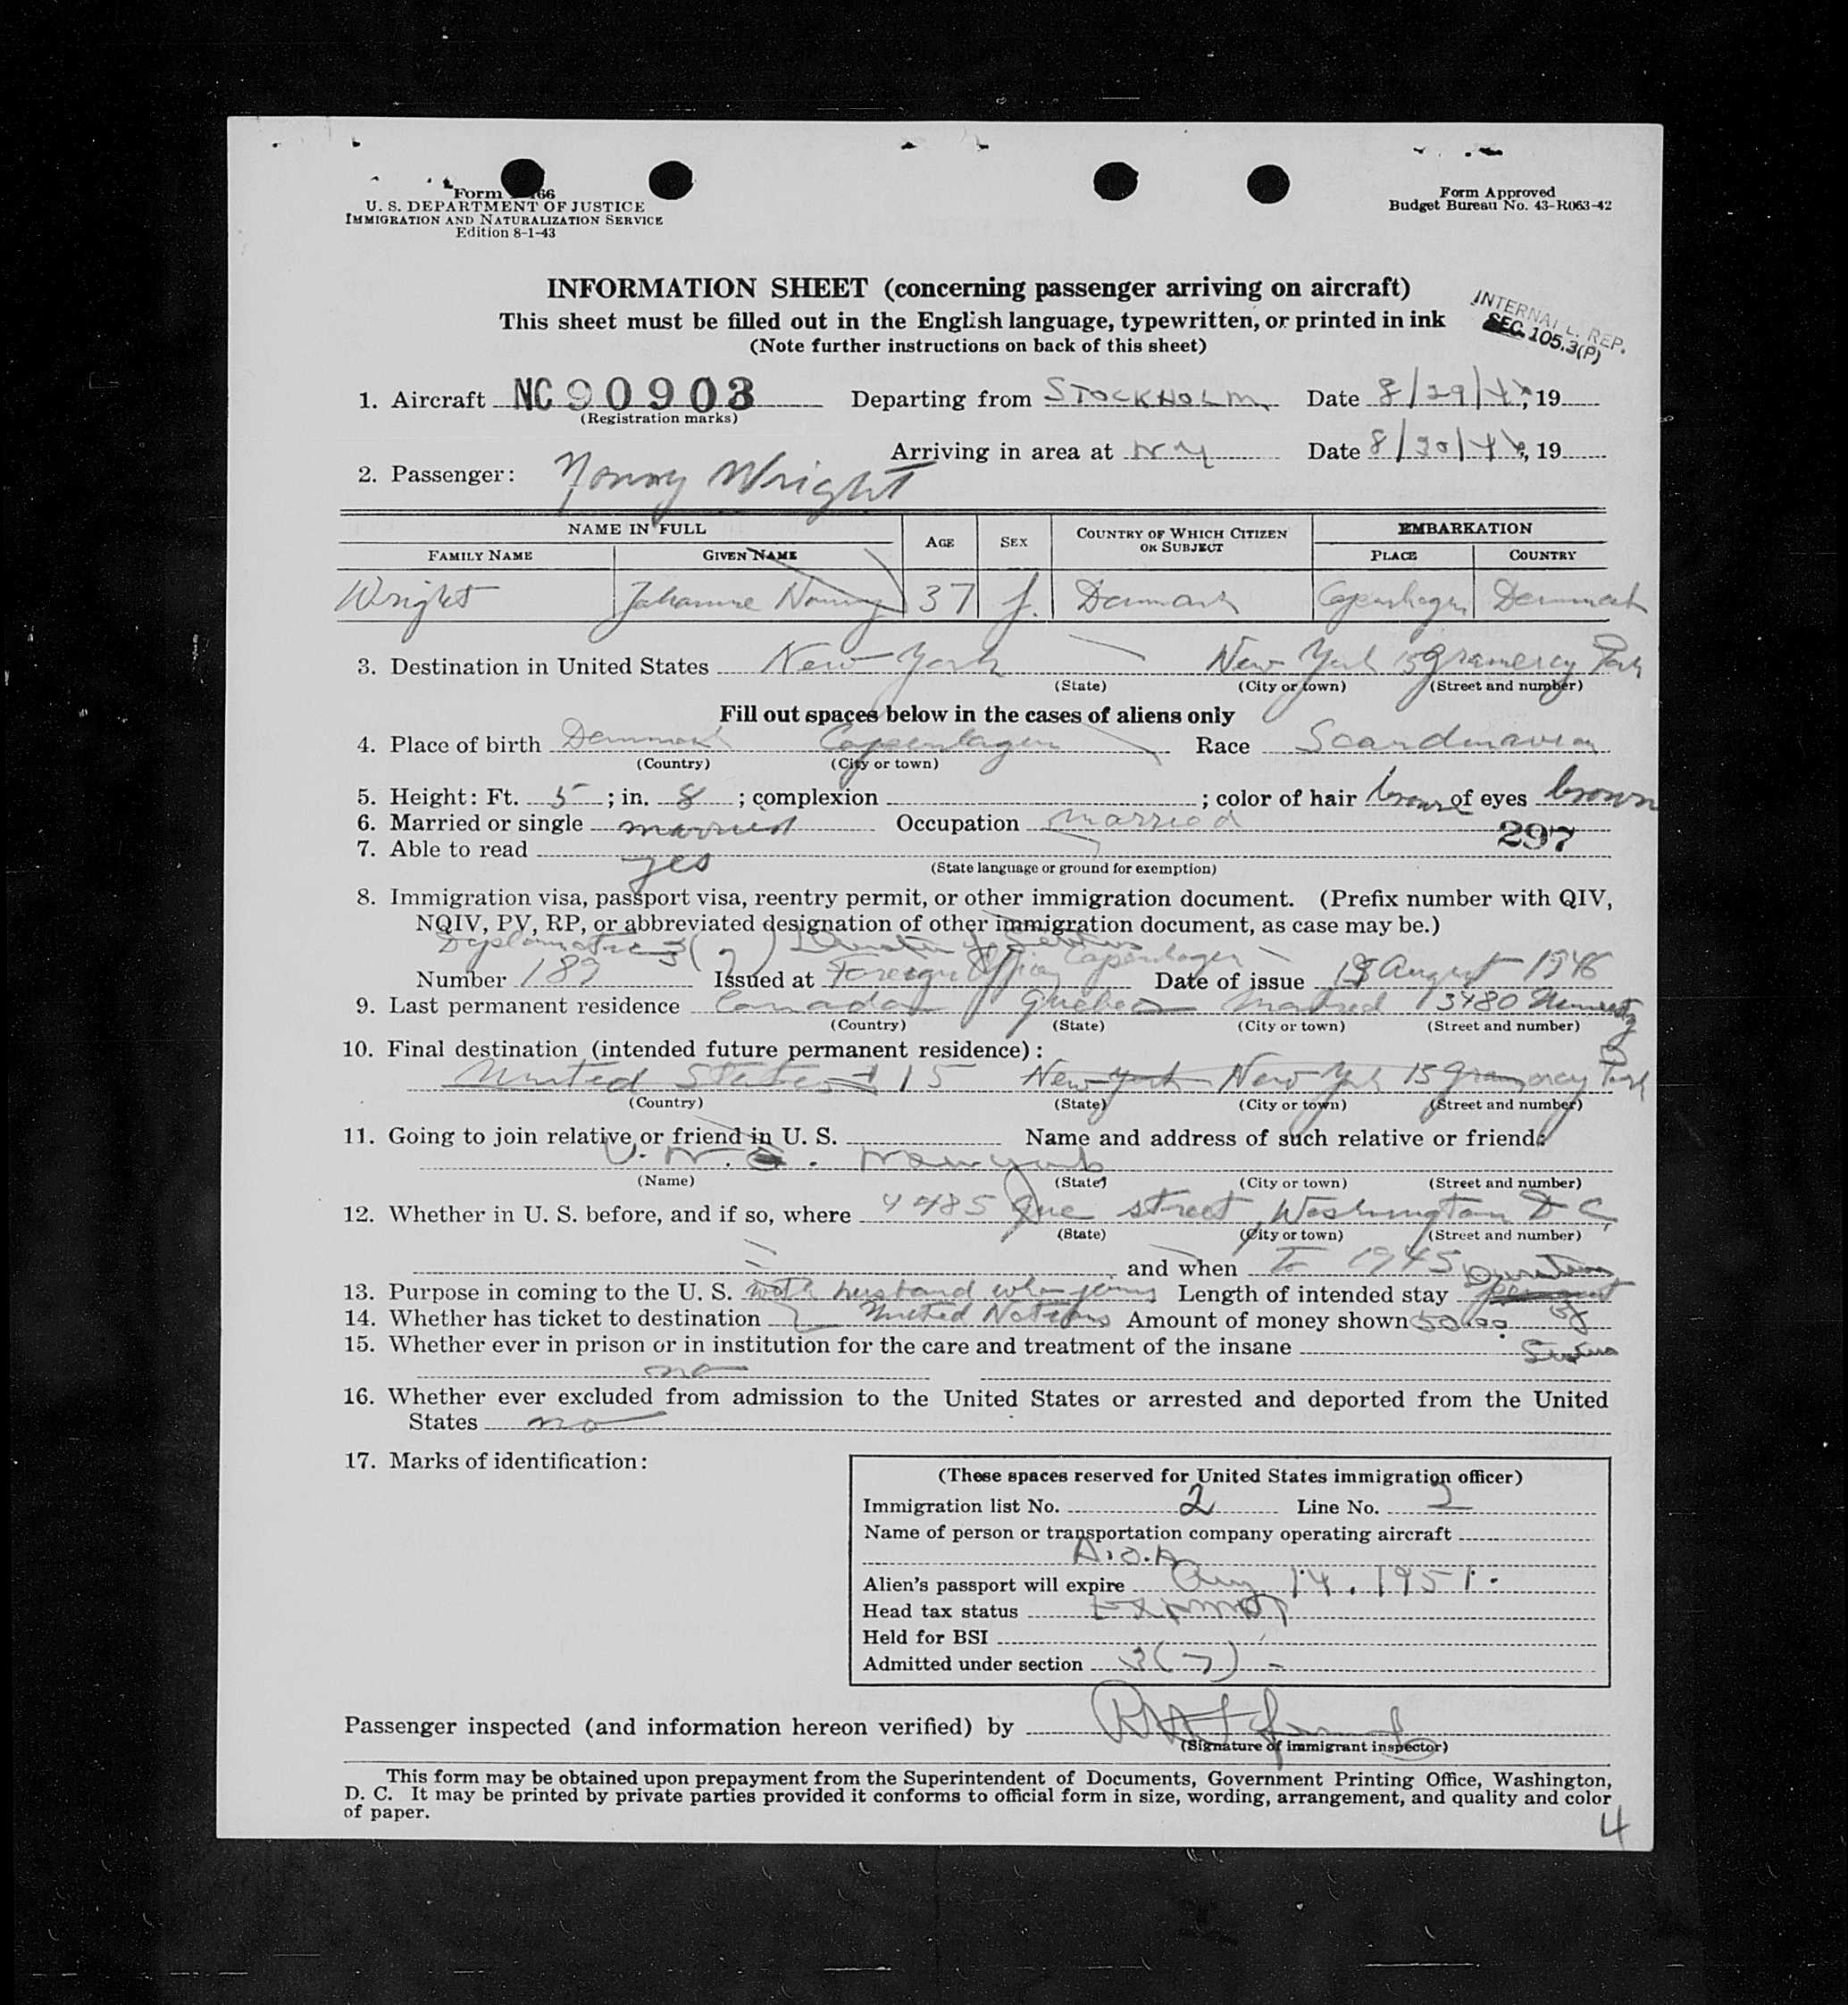 Form 66
U. S. DEPARTMENT OF JUSTICE
IMMIGRATION AND NATURALIZATION SERVICE
Edition 8-1-43
Form Approved
Budget Bureau No. 43-R063-42
INFORMATION SHEET (concerning passenger arriving on aircraft)
This sheet must be filled out in the English language, typewritten, or printed in ink
(Note further instructions on back of this sheet)
INTERNAT'L. REP.
SEC. 105.3(P)
1. Aircraft NC90903 Departing from STOCKHOLM Date 8/29/46, 19
(Registration marks)
Arriving in area at NY Date 8/30/46, 19
2. Passenger: Nonny Wright
NAME IN FULL AGE SEX COUNTRY OF WHICH CITIZEN OR SUBJECT EMBARKATION
FAMILY NAME GIVEN NAME PLACE COUNTRY
Wright Johanne Nonny 37 f. Denmark Copenhagen Denmark
3. Destination in United States New York New York 15 Gramercy Park
(State) (City or town) (Street and number)
Fill out spaces below in the cases of aliens only
4. Place of birth Denmark Copenhagen Race Scandinavian
(Country) (City or town)
5. Height: Ft. 5; in. 8; complexion ; color of hair brown of eyes brown
6. Married or single married Occupation married
297
7. Able to read yes
(State language or ground for exemption)
8. Immigration visa, passport visa, reentry permit, or other immigration document. (Prefix number with QIV,
NQIV, PV, RP, or abbreviated designation of other immigration document, as case may be.)
Diplomatic 3(7) Duration of Status
Number 189 Issued at Foreign Office Copenhagen Date of issue 18 August 1946
9. Last permanent residence Canada Quebec Montreal 3480
(Country) (State) (City or town) (Street and number)
10. Final destination (intended future permanent residence):
United States 15 New York New York 15 Gramercy Park
(Country) (State) (City or town) (Street and number)
11. Going to join relative or friend in U. S. Name and address of such relative or friend:
U.N.O. New York
(Name) (State) (City or town) (Street and number)
12. Whether in U. S. before, and if so, where 4485 Que street, Washington D C,
(State) (City or town) (Street and number)
and when To 1945
13. Purpose in coming to the U. S. with husband who joins Length of intended stay Duration of Status
14. Whether has ticket to destination United Nations Amount of money shown 50.00
15. Whether ever in prison or in institution for the care and treatment of the insane
no
16. Whether ever excluded from admission to the United States or arrested and deported from the United
States no
17. Marks of identification:
(These spaces reserved for United States immigration officer)
Immigration list No. 2 Line No. 2
Name of person or transportation company operating aircraft
A.O.A
Alien's passport will expire Aug 14. 1951.
Head tax status Exempt
Held for BSI
Admitted under section 3(7) -
Passenger inspected (and information hereon verified) by
(Signature of immigrant inspector)
This form may be obtained upon prepayment from the Superintendent of Documents, Government Printing Office, Washington,
D. C. It may be printed by private parties provided it conforms to official form in size, wording, arrangement, and quality and color
of paper.
4